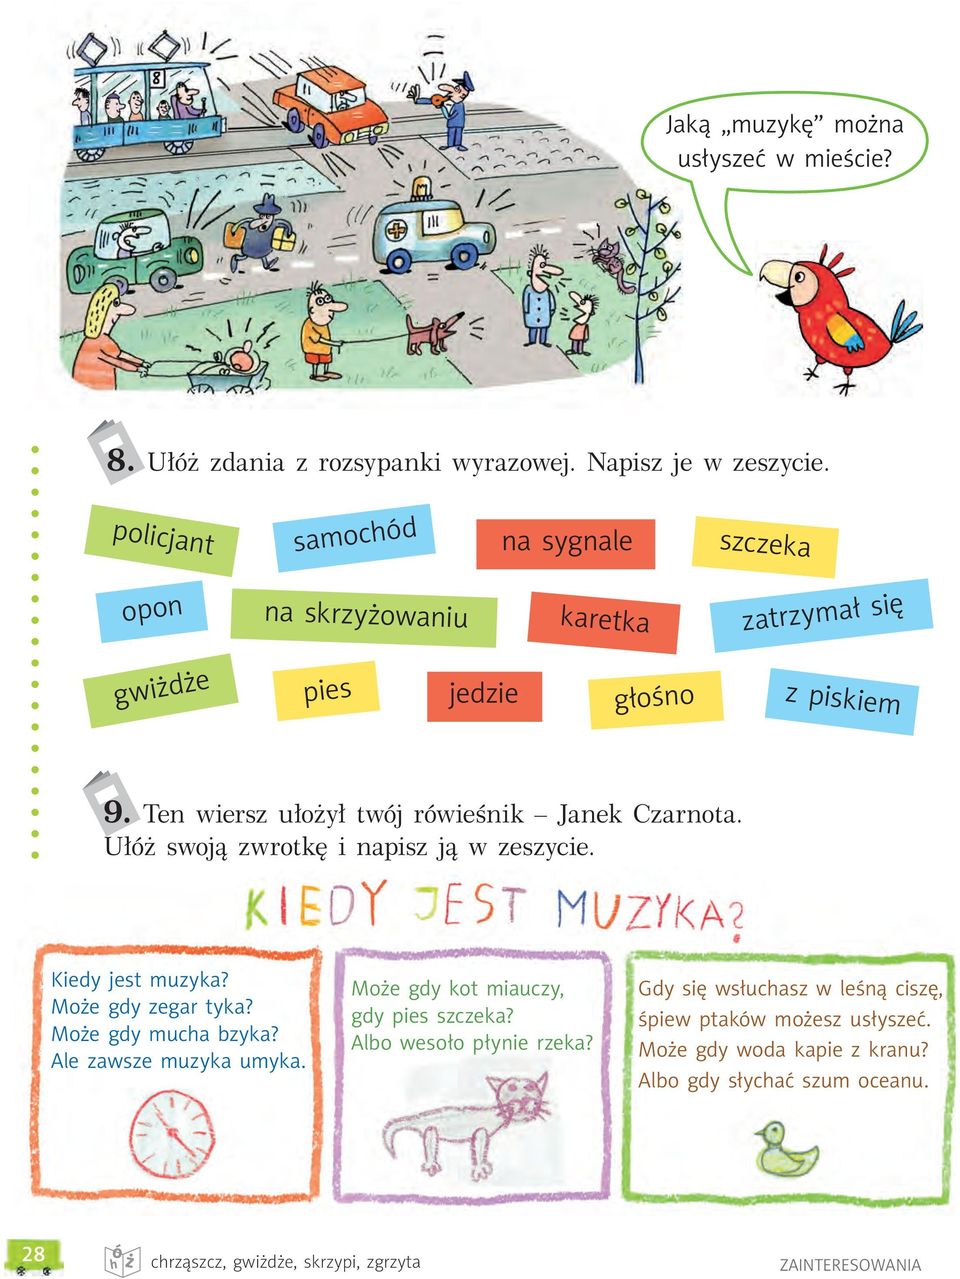 8
Jaką „muzykę” można
usłyszeć w mieście?
8. Ułóż zdania z rozsypanki wyrazowej. Napisz je w zeszycie.
policjant samochód na sygnale szczeka
opon na skrzyżowaniu karetka zatrzymał się
gwiżdże pies jedzie głośno z piskiem
9. Ten wiersz ułożył twój rówieśnik – Janek Czarnota.
Ułóż swoją zwrotkę i napisz ją w zeszycie.
KIEDY JEST MUZYKA?
Kiedy jest muzyka?
Może gdy zegar tyka?
Może gdy mucha bzyka?
Ale zawsze muzyka umyka.
Może gdy kot miauczy,
gdy pies szczeka?
Albo wesoło płynie rzeka?
Gdy się wsłuchasz w leśną ciszę,
śpiew ptaków możesz usłyszeć.
Może gdy woda kapie z kranu?
Albo gdy słychać szum oceanu.
28
ó h ż
chrząszcz, gwiżdże, skrzypi, zgrzyta
ZAINTERESOWANIA